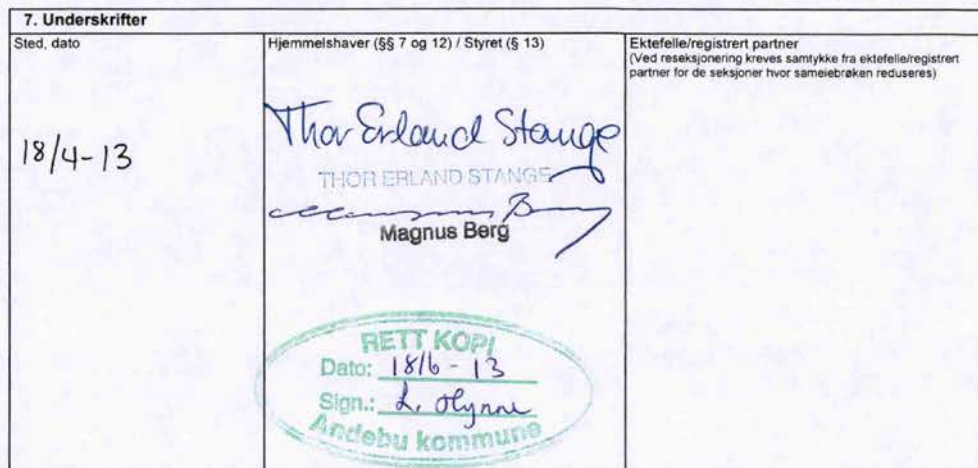 7. Underskrifter
Sted, dato
18/4-13
Hjemmelshaver (§§ 7 og 12) / Styret (§ 13)
Thor Erland Stange
THOR ERLAND STANGE
Magnus Berg
RETT KOPI
Dato: 18/6-13
Sign.: L.
Andebu kommune
Ektefelle/registrert partner
(Ved reseksjonering kreves samtykke fra ektefelle/registrert
partner for de seksjoner hvor sameiebrøken reduseres)